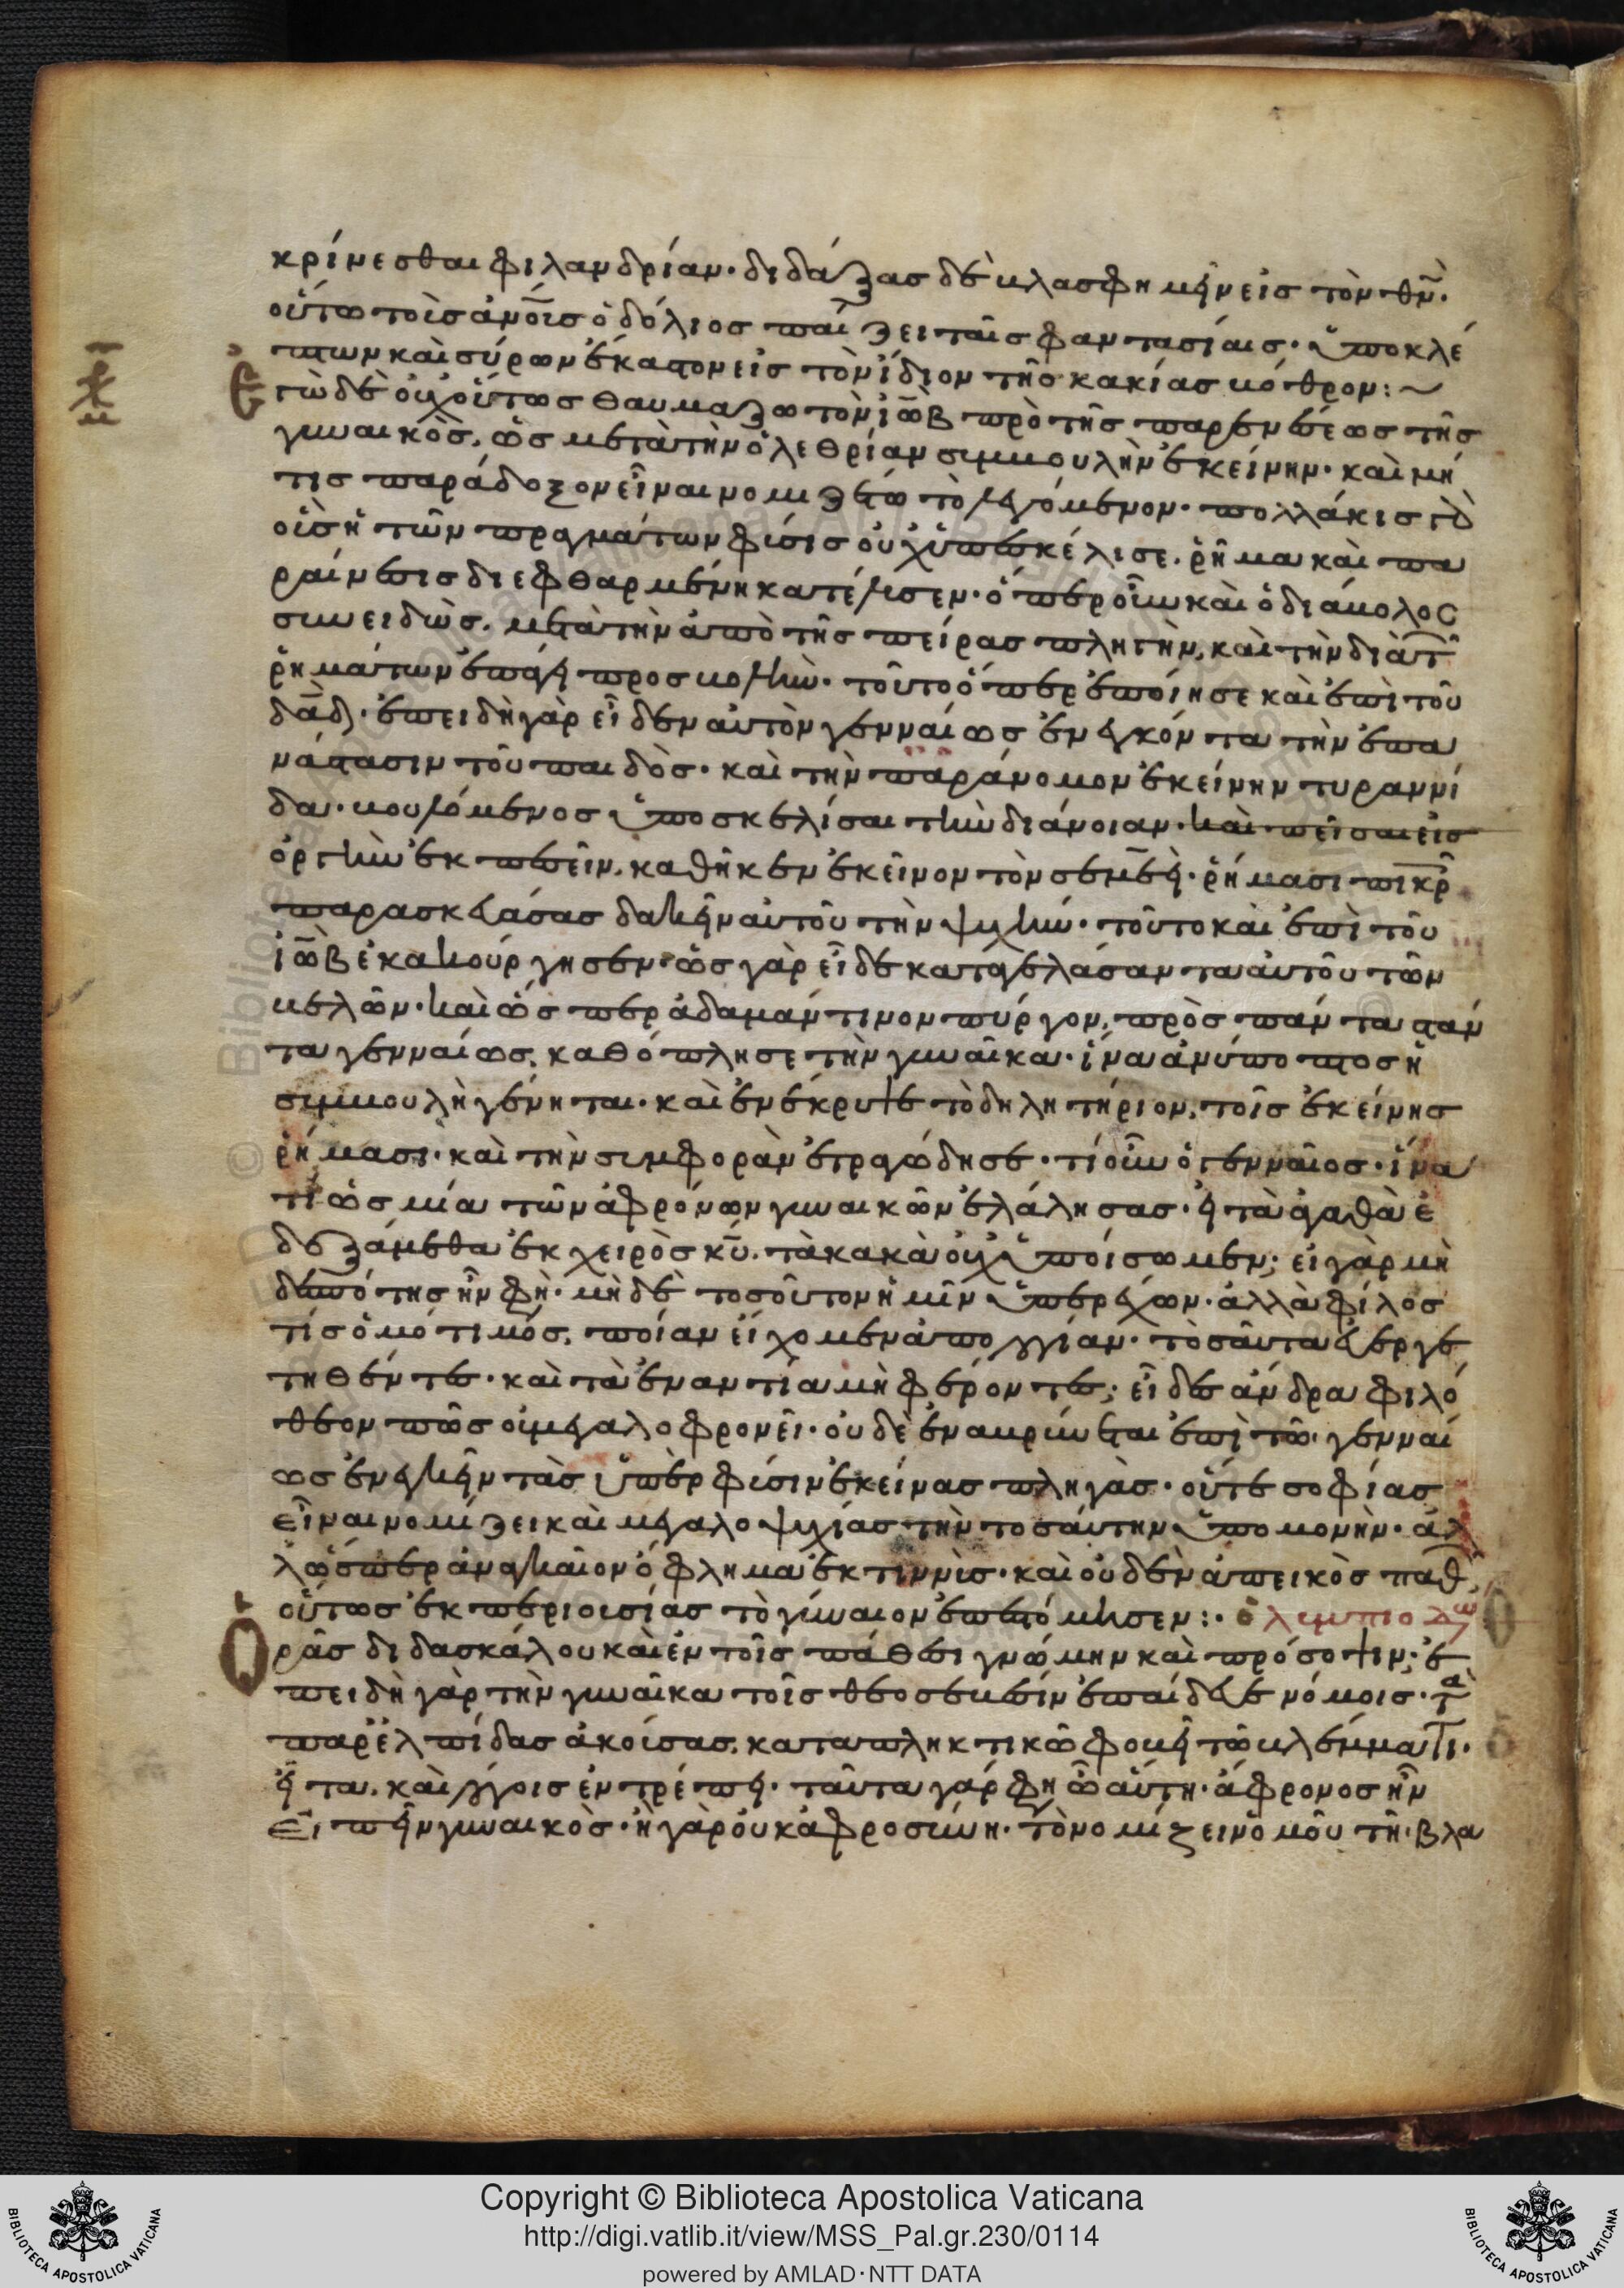 κρίνεσθαι φιλανδρίαν· διδάξας δὲ βλασφημῆν εἰς τὸν θν̄·
οὕτω τοῖς ἀνοῖς ὁ δόλιος παίζει ταῖς φαντασίαις· ὑποκλέ
πτων καὶ σύρων ἕκαστον εἰς τὸν ἴδιον τῆς κακίας βόθρον:~
Ἐγὼ δὲ οὐχ οὕτως θαυμάζω τὸν ἰὼβ πρὸ τῆς παραινέσεως τῆς
γυναικὸς, ὡς μετὰ τὴν ὀλεθρίαν συμβουλὴν ἐκείνην· καὶ μή
τις παράδοξον εἶναι νομιζέτω τὸ λεγόμενον· πολλάκις γὰρ
οὓς ἡ τῶν πραγμάτων φύσις οὐχ ὑπεσκέλισε, ῥῆμα καὶ πα
ραίνεσις διεφθαρμένη κατέβαλεν· ὅπερ οὖν καὶ ὁ διάβολος
συνειδὼς, μετὰ τὴν ἀπὸ τῆς πείρας πληγὴν, καὶ τὴν διὰ τ
ῥημάτων ἐπάγει προσβολὴν· τοῦτο ὅπερ ἐποίησε καὶ ἐπὶ τοῦ
δαδ· ἐπειδὴ γὰρ εἶδεν αὐτὸν γενναίως ἐνεγκόντα τὴν ἐπα
νάστασιν τοῦ παιδὸς· καὶ τὴν παράνομον ἐκείνην τυραννί
δα· βουλόμενος ὑποσκελίσαι τὴν διάνοιαν· καὶ πεῖσαι εἰς
ὀργὴν ἐκπεσεῖν, καθῆκεν ἐκεῖνον τὸν σεμεεὶ· ῥήμασι πικρ
παρασκευάσας δακεῖν αὐτοῦ τὴν ψυχήν· τοῦτο καὶ ἐπὶ τοῦ
ἰὼβ ἐκακούργησεν· ὡς γὰρ εἶδε καταγελάσαντα αὐτοῦ τῶν
βελῶν· καὶ ὥσπερ ἀδαμάντινον πύργον, πρὸς πάντα στάν
τα γενναίως, καθόπλησε τὴν γυναῖκα· ἵνα ἀνύποπτος ἡ
συμβουλὴ γένηται· καὶ ἐνέκρυψε τὸ δηλητήριον, τοῖς ἐκείνης
ῥήμασι· καὶ τὴν συμφορὰν ἐτραγώδησε· τί οὖν ὁ γενναῖος· ἵνα
τί ὡς μία τῶν ἀφρόνων γυναικῶν ἐλάλησας· εἰ τὰ ἀγαθὰ ἐ
δεξάμεθα ἐκ χειρὸς κῡ, τὰ κακὰ οὐχ ὑποίσωμεν; εἰ γὰρ μὴ
δεσπότης ἦν φη· μὴ δὲ τοσοῦτον ἡμῖν ὑπερέχων· ἀλλὰ φίλος
τίς ὁμότιμος, ποίαν εἴχομεν ἀπολογίαν· τοσαῦτα εὐεργε
τηθέντες· καὶ τὰ ἐναντία μὴ φέροντες; εἶδες ἄνδρα φιλό
θεον πῶς οὐ μεγαλοφρονεῖ· οὐδὲ ἐναβρύνεται ἐπὶ τῶ γενναί
ως ἐνεγκεῖν τὰς ὑπὲρ φύσιν ἐκείνας πληγὰς· οὔτε σοφίας
εἶναι νομίζει καὶ μεγαλοψυχίας τὴν τοσαύτην ὑπομονὴν· ἀλ
λ' ὥσπερ ἀναγκαῖον ὄφλημα ἐκτιννὺς· καὶ οὐδὲν ἀπεικὸς παθ
οὕτως ἐκ περιουσίας τὸ γύναιον ἐπεστόμισεν:· ὀλυμπιο δώ
Ὁρᾶς διδασκάλου καὶ ἐν τοῖς πάθεσι γνώμην καὶ πρόσοψιν; ἐ
πειδὴ γὰρ τὴν γυναῖκα τοῖς θεοσεβέσιν ἐπαίδευε νόμοις· τὰ
παρ' ἐλπίδας ἀκούσας, καταπληκτικῶ φοβεῖ τῶ βλέμματι·
εἶτα, καὶ λόγοις ἐντρέπει· ταῦτα γάρ φη ὦ αὕτη· ἄφρονος ἦν
εἰπεῖν γυναικὸς· ἢ γὰρ οὐκ ἀφροσύνη· τὸ νομίζειν ὁμοῦ τῆ βλα